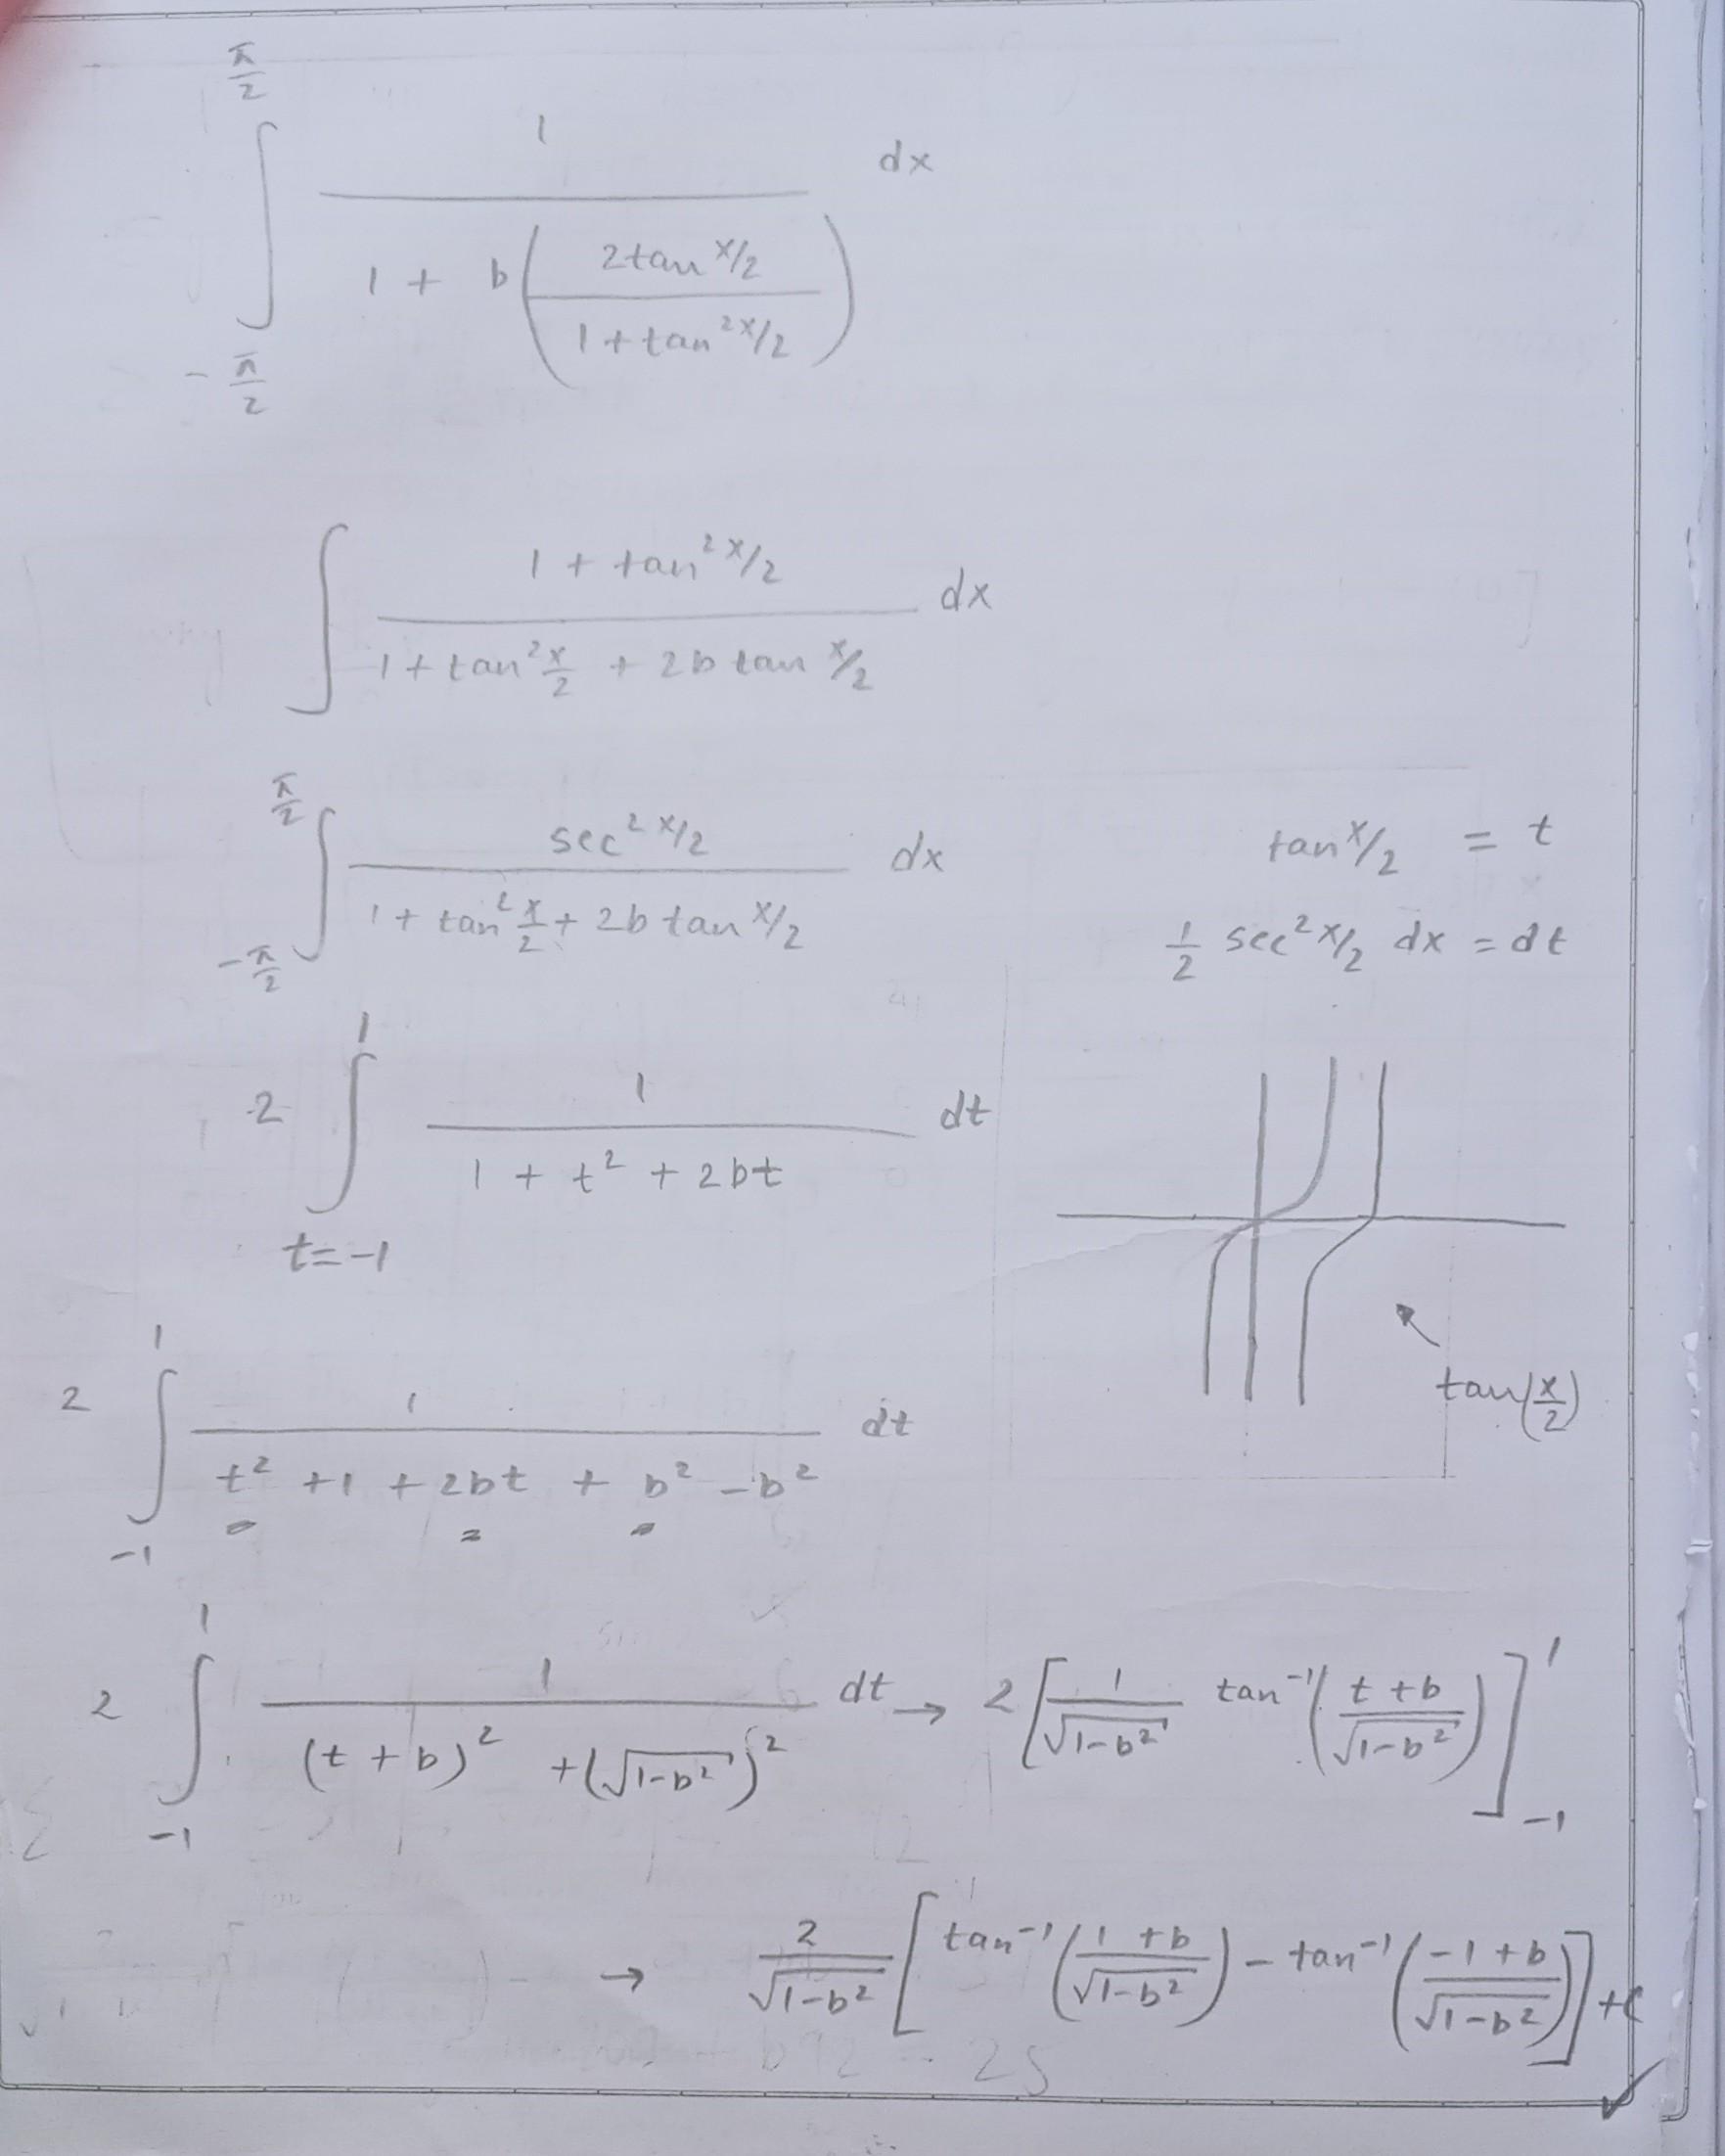 ∫_{-π/2}^{π/2} 1 / (1 + b( (2tan x/2) / (1 + tan² x/2) )) dx
∫ (1 + tan² x/2) / (1 + tan² x/2 + 2b tan x/2) dx
∫_{-π/2}^{π/2} (sec² x/2) / (1 + tan² x/2 + 2b tan x/2) dx
tan x/2 = t
1/2 sec² x/2 dx = dt
2 ∫_{t=-1}^{1} 1 / (1 + t² + 2bt) dt
tan(x/2)
2 ∫_{-1}^{1} 1 / (t² + 1 + 2bt + b² - b²) dt
2 ∫_{-1}^{1} 1 / ((t + b)² + (√(1-b²))²) dt → 2 [ 1/√(1-b²) tan⁻¹( (t + b)/√(1-b²) ) ]_{-1}^{1}
→ 2/√(1-b²) [ tan⁻¹( (1 + b)/√(1-b²) ) - tan⁻¹( (-1 + b)/√(1-b²) ) ] + C